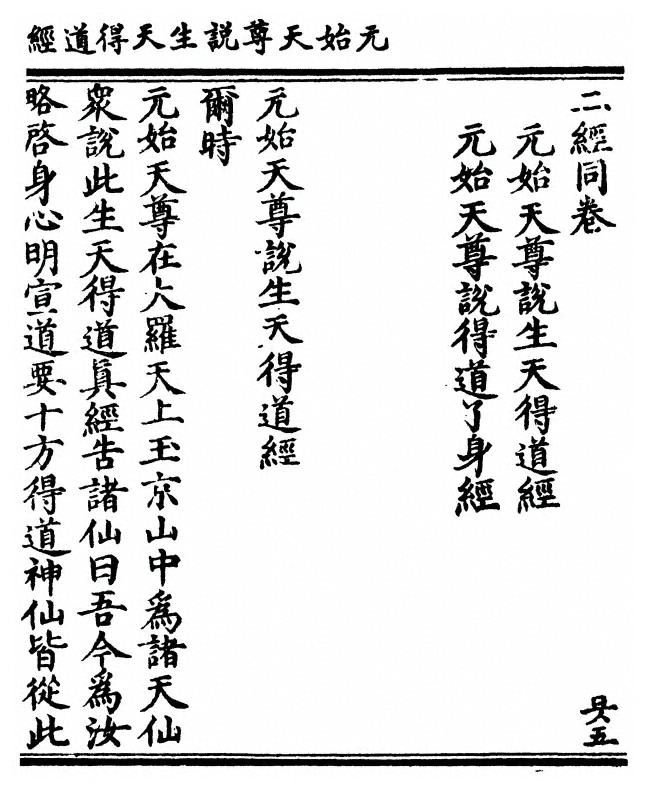 元始天尊說生天得道經
二經同卷
元始天尊說生天得道經
元始天尊說得道了身經
元始天尊說生天得道經
爾時
元始天尊在大羅天上玉京山中爲諸天仙
衆說此生天得道眞經告諸仙曰吾今爲汝
略啓身心明宣道要十方得道神仙皆從此